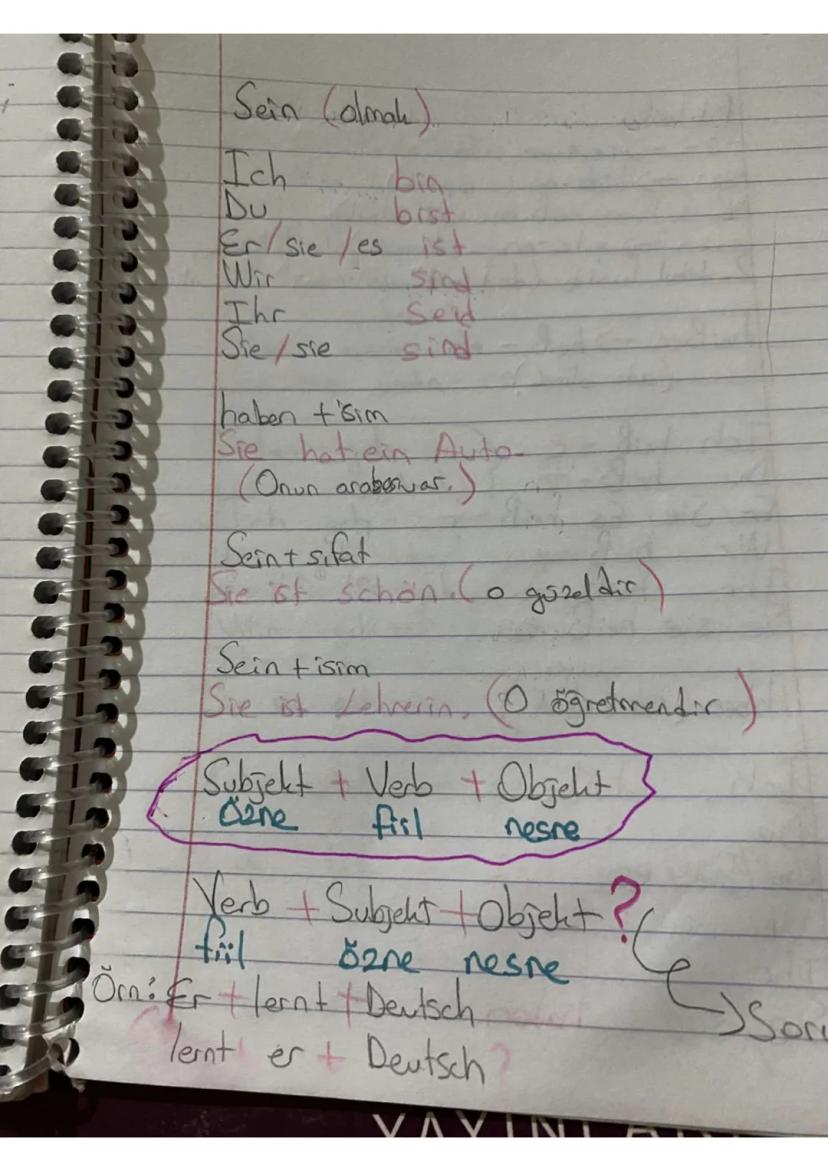 Sein (olmak)
Ich bin
Du bist
Er/sie/es ist
Wir sind
Ihr seid
Sie/sie sind
haben + isim
Sie hat ein Auto.
(Onun arabası var.)
Sein + sıfat
Sie ist schön. (o güzeldir)
Sein + isim
Sie ist Lehrerin. (O öğretmendir)
Subjekt + Verb + Objekt
özne fiil nesne
Verb + Subjekt + Objekt ?
fiil özne nesne
Örn: Er + lernt + Deutsch
→ Soru
lernt er + Deutsch ?
YAYINLARI